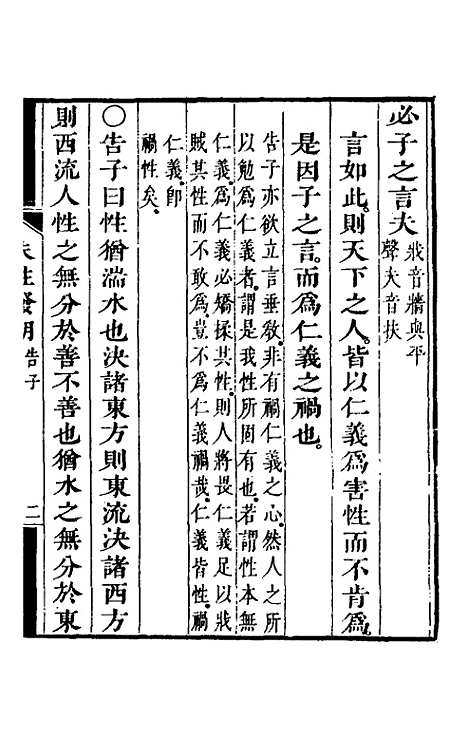 必子之言夫
戕音牆與平
聲夫音扶
言如此。則天下之人。皆以仁義爲害性而不肯爲。
是因子之言。而爲仁義之禍也。
告子亦欲立言垂敎。非有禍仁義之心。然人之所
以勉爲仁義者。謂是我性所固有也。若謂性本無
仁義。爲仁義必矯揉其性。則人將畏仁義足以戕
賊其性而不敢爲。豈不爲仁義禍哉。仁義皆性。禍
仁義卽
禍性矣。
○告子曰性猶湍水也決諸東方則東流決諸西方
則西流人性之無分於善不善也猶水之無分於東
朱註發明 告子 二